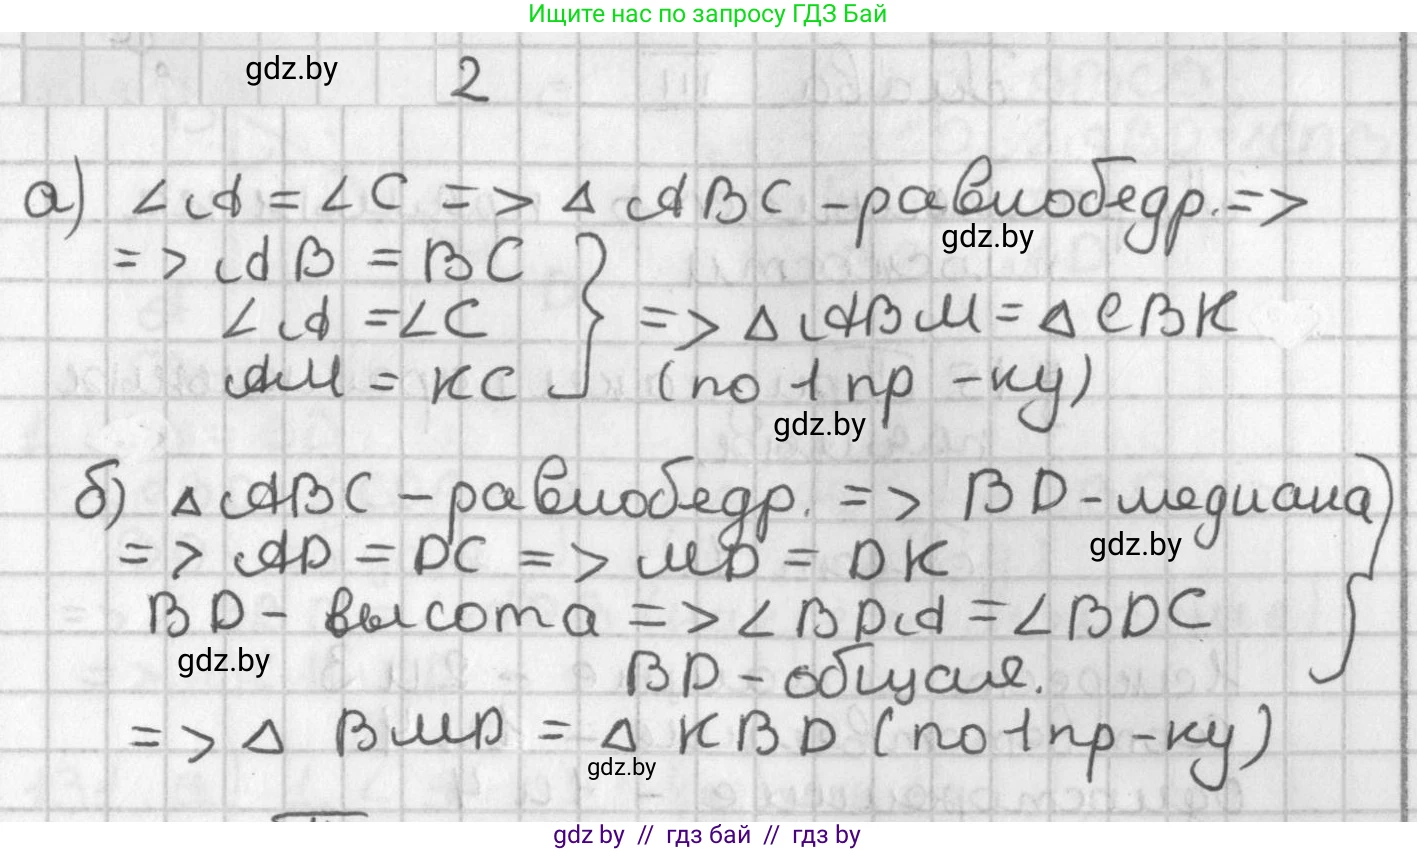 Ищите нас по запросу ГДЗ Бай
gdz.by
2
а) ∠A = ∠C => Δ ABC - равнобедр. =>
gdz.by
=> AB = BC
∠A = ∠C } => Δ ABM = Δ CBK
AM = KC (по 1 пр-ку)
gdz.by
б) Δ ABC - равнобедр. => BD - медиана
=> AD = DC => MD = DK }
gdz.by
BD - высота => ∠BDA = ∠BDC
gdz.by
BD - общая.
=> Δ BMD = Δ KBD (по 1 пр-ку)
gdz.by
gdz.by // гдз бай // гдз by